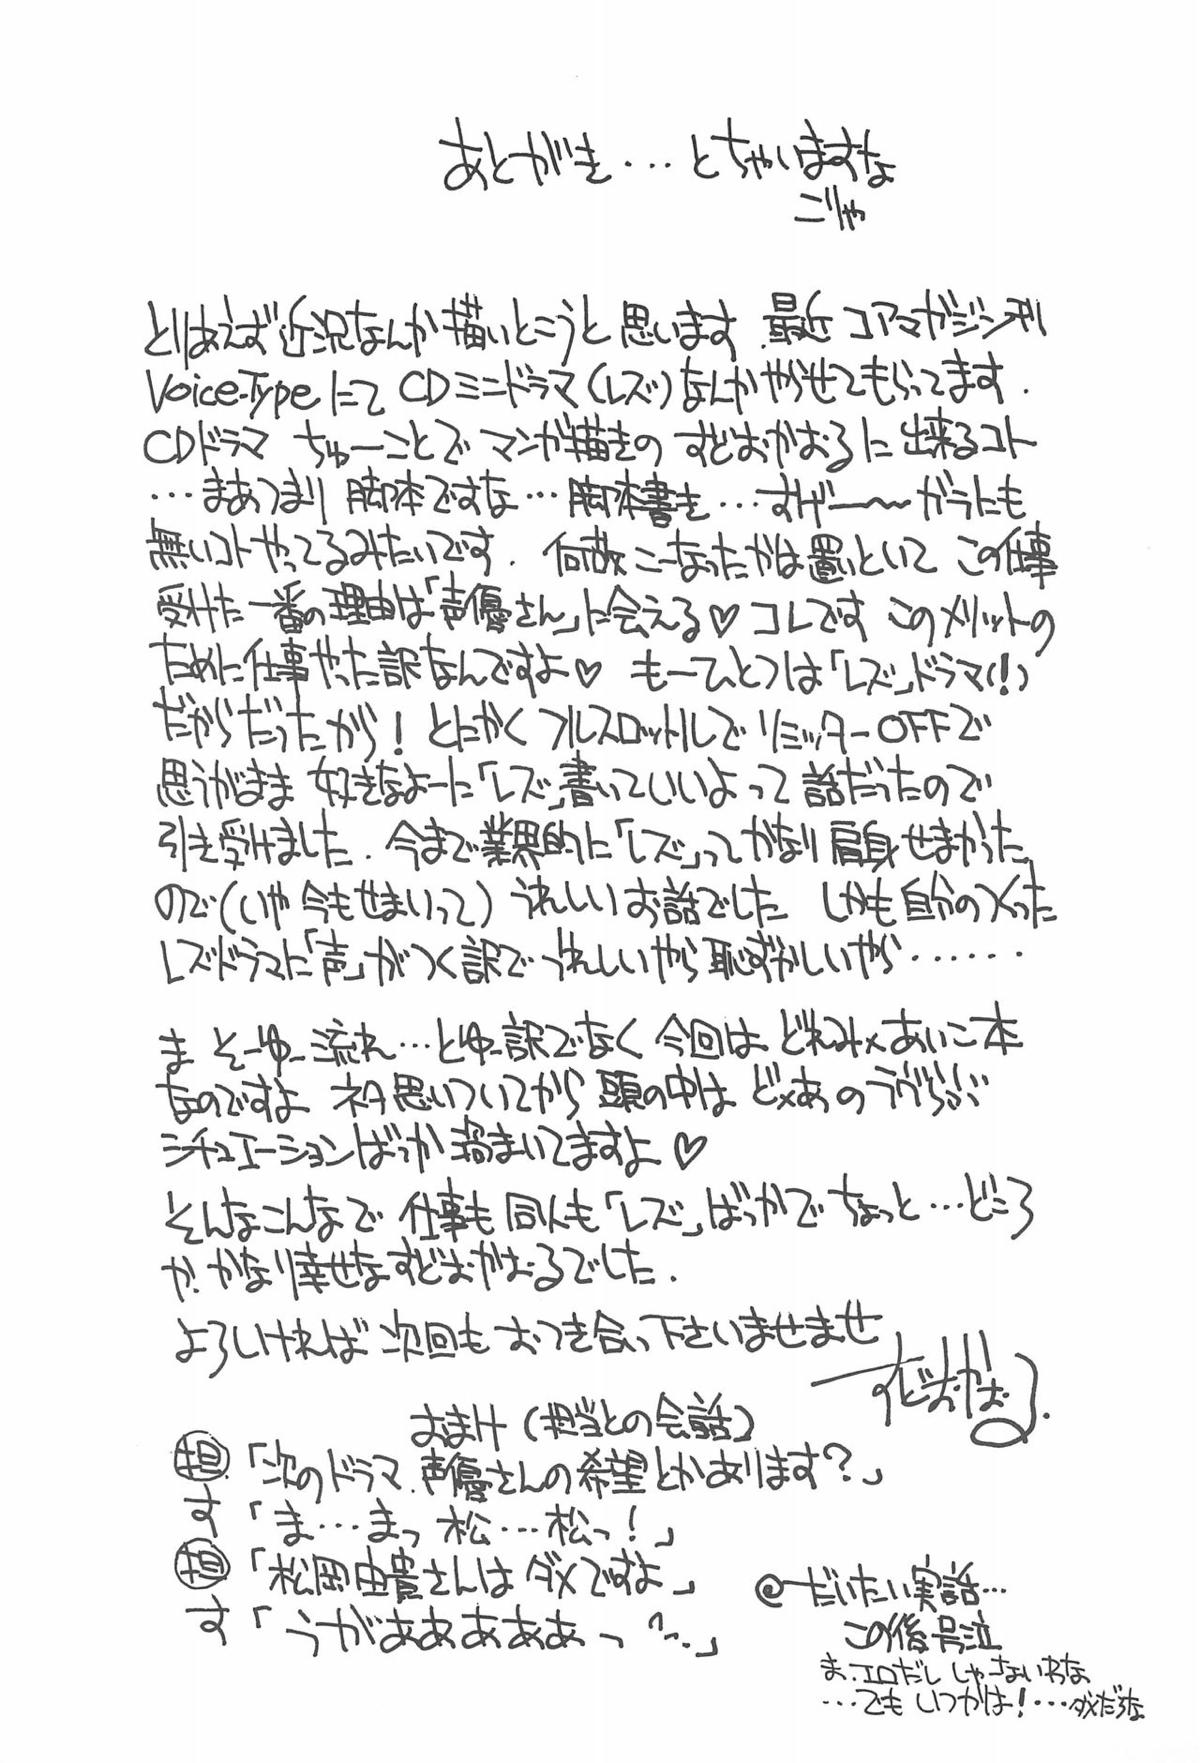 あとがき・・・とちゃいますな
こりゃ
とりあえず近況なんか描いとこうと思います．最近コアマガジン刊
Voice-TypeにてCDミニドラマ(レズ)なんかやらせてもらってます．
CDドラマ ちゅーことでマンガ描きのすどおかおるに出来るコト
・・・まあつまり 脚本ですな・・・脚本書き・・・すげー〜〜がらにも
無いコトやってるみたいです．何故こーなったかは置いといて この仕事
受けた一番の理由は「声優さん」に会える♡ コレです このメリットの
ために仕事やった訳なんですよ♡ もーひとつは「レズ」ドラマ(!)
だからだったから！とにかくフルスロットルでリミッターOFFで
思うがまま 好きなよーに「レズ」書いていいよって話だったので
引き受けました．今まで業界的に「レズ」ってかなり肩身せまかった
ので(いや今もせまいって)うれしいお話でした しかも自分のつくった
レズドラマに「声」がつく訳で うれしいやら恥ずかしいやら・・・・・・
ま そーゆー流れ・・・とゆー訳でなく 今回は どれみ×あいこ本
なのですよ ネタ思いついてから 頭の中は ど×あの うがらぶぶ
シチュエーションばっか渦まいてますよ♡
そんなこんなで 仕事も同人も「レズ」ばっかで ちょっと・・・どころ
か．かなり幸せなすどおかおるでした．
よろしければ 次回も おつき合い下さいませませ
すどおかおる．
おまけ(担当との会話)
担「次のドラマ．声優さんの希望とかあります？」
す「ま・・・まっ 松・・・松っ！」
担「松岡由貴さんは ダメですよ」
す「うがあああああっ」
@だいたい実話・・・
この後号泣
ま．エロだし しゃーないわな
・・・でも いつかは！・・・ダメだろな